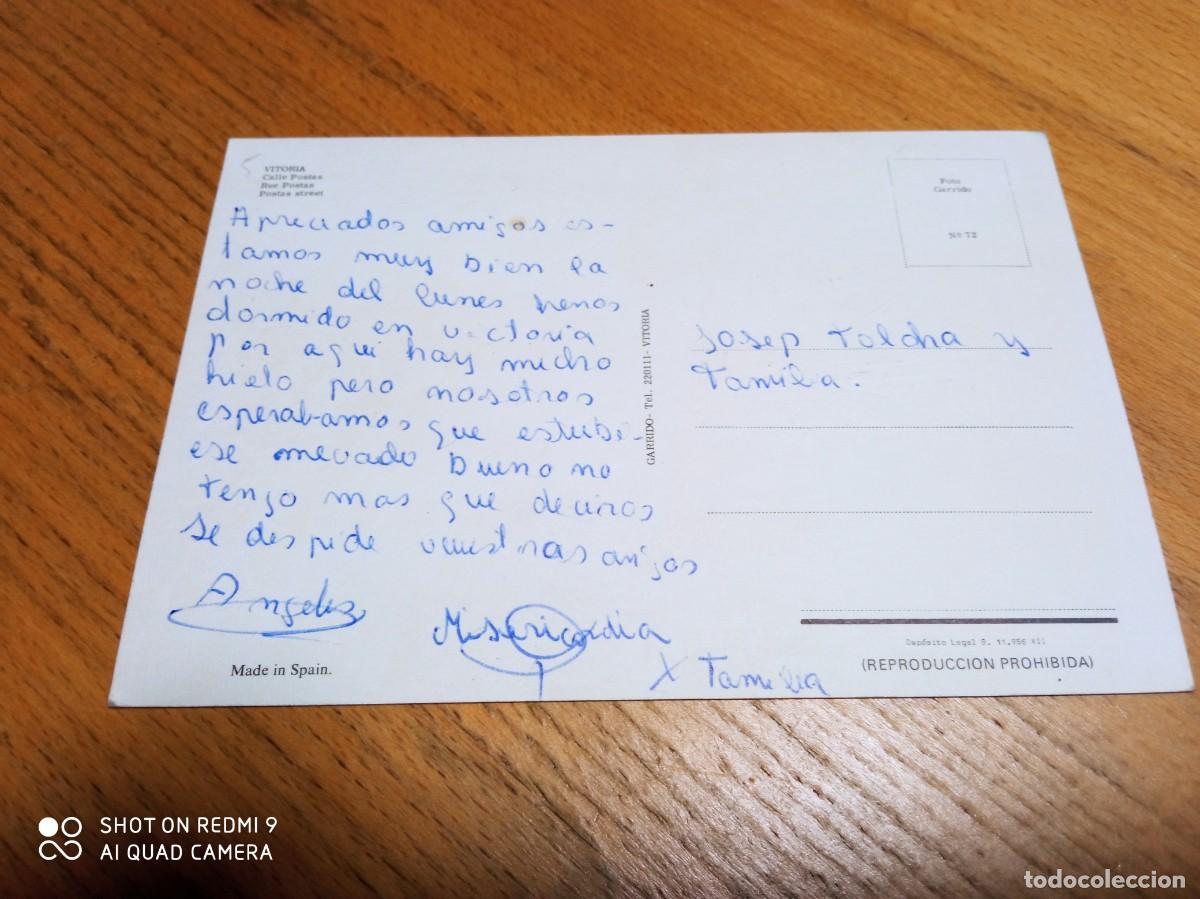 VITORIA
Calle Postas
Rue Postas
Postas street
Apreciados amigos es-
tamos muy bien la
noche del lunes hemos
dormido en victoria
por aqui hay mucho
hielo pero nosotros
esperabamos que estubi-
ese nevado bueno no
tengo mas que deciros
se despide vuestras amigas
Angeles
Misericordia
X Familia
Made in Spain.
GARRIDO - Tel. 220111 - VITORIA
Foto
Garrido
Nº 72
Josep Folcha y
Familia.
Depósito Legal B. 11.956 XII
(REPRODUCCION PROHIBIDA)
SHOT ON REDMI 9
AI QUAD CAMERA
todocoleccion